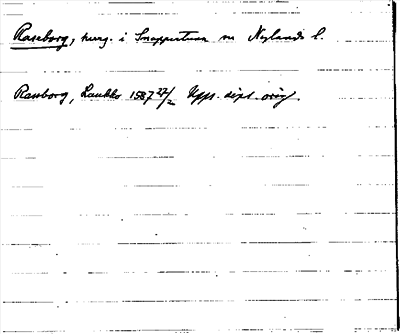 Raseborg, herrg. i Snappertuna sn Nylands l.
Raseborg, Laukko 1587 27/2 Upps. dipl. orig.